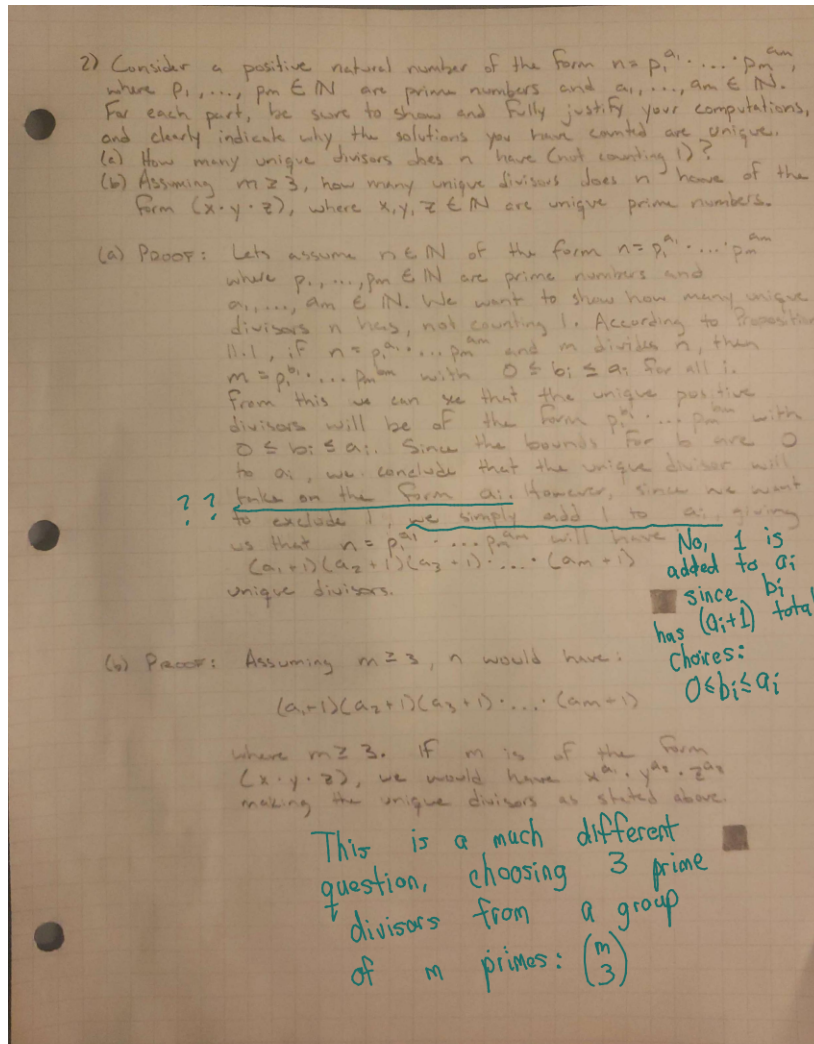 2) Consider a positive natural number of the form n = p₁^a₁ · .... · pₘ^aₘ,
where p₁,..., pₘ ∈ ℕ are prime numbers and a₁,..., aₘ ∈ ℕ.
For each part, be sure to show and fully justify your computations,
and clearly indicate why the solutions you have counted are unique.
(a) How many unique divisors does n have (not counting 1)?
(b) Assuming m ≥ 3, how many unique divisors does n have of the
form (x·y·z), where x,y,z ∈ ℕ are unique prime numbers.
(a) PROOF: Lets assume n ∈ ℕ of the form n = p₁^a₁ · .... · pₘ^aₘ
where p₁,...,pₘ ∈ ℕ are prime numbers and
a₁,..., aₘ ∈ ℕ. We want to show how many unique
divisors n has, not counting 1. According to Proposition
11.1, if n = p₁^a₁ · ... pₘ^aₘ and m divides n, then
m = p₁^b₁ · ... pₘ^bₘ with 0 ≤ bᵢ ≤ aᵢ for all i.
From this we can see that the unique positive
divisors will be of the form p₁^b₁ · ... pₘ^bₘ with
0 ≤ bᵢ ≤ aᵢ. Since the bounds for b are 0
to aᵢ, we conclude that the unique divisor will
? ? take on the form aᵢ. However, since we want
to exclude 1, we simply add 1 to aᵢ, giving
us that n = p₁^a₁ · ... · pₘ^aₘ will have
(a₁+1)(a₂+1)(a₃+1)· .... ·(aₘ+1)
unique divisors.
No, 1 is
added to aᵢ
since bᵢ
has (aᵢ+1) total
choices:
0≤bᵢ≤aᵢ
(b) PROOF: Assuming m ≥ 3, n would have:
(a₁+1)(a₂+1)(a₃+1)· .... ·(aₘ+1)
where m ≥ 3. If m is of the form
(x·y·z), we would have x^a₁ · y^a₂ · z^a₃
making the unique divisors as stated above.
This is a much different
question, choosing 3 prime
divisors from a group
of m primes: (m 3)